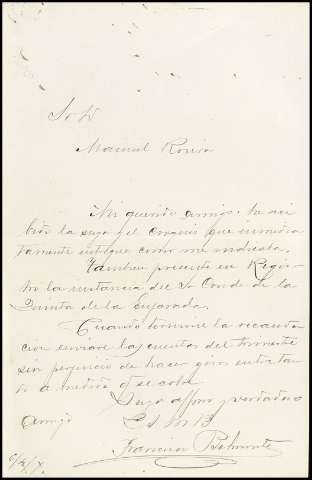 Sr D
Manuel Rovira
Mi querido amigo: he reci
bido la suya y el que inmedia
tamente entregue como me indicaba.
Tambien presente en Regis
tro la instancia del Sr Conde de la
Quinta de la Enjarada.
Cuando termine la recauda
cion enviare las cuentas del trimestre
sin perjuicio de hacer giro en tu tan
to a medida q se cobre
Suyo affmo y verdadero
amigo L S M B
Francisco Belmonte